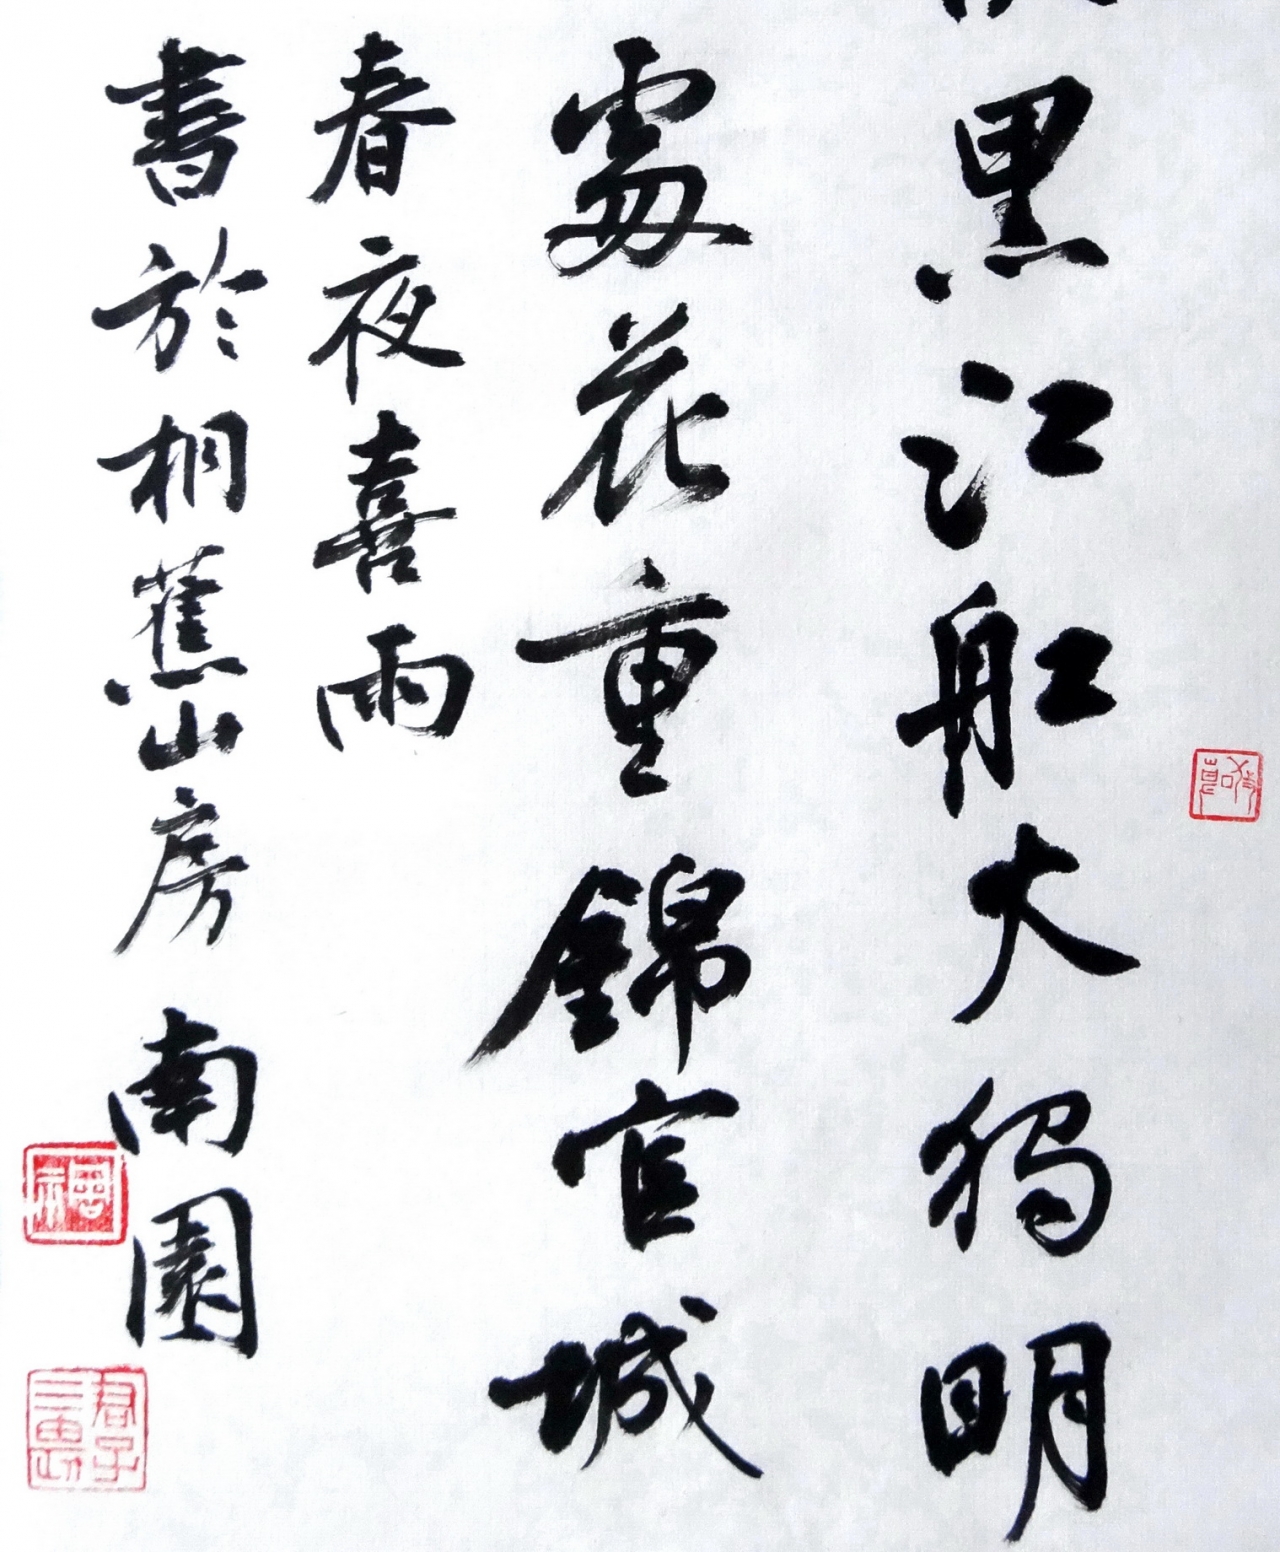 黑江船火獨明
處花重錦官城
春夜喜雨
書於桐蕉山房 南園
君子三畏